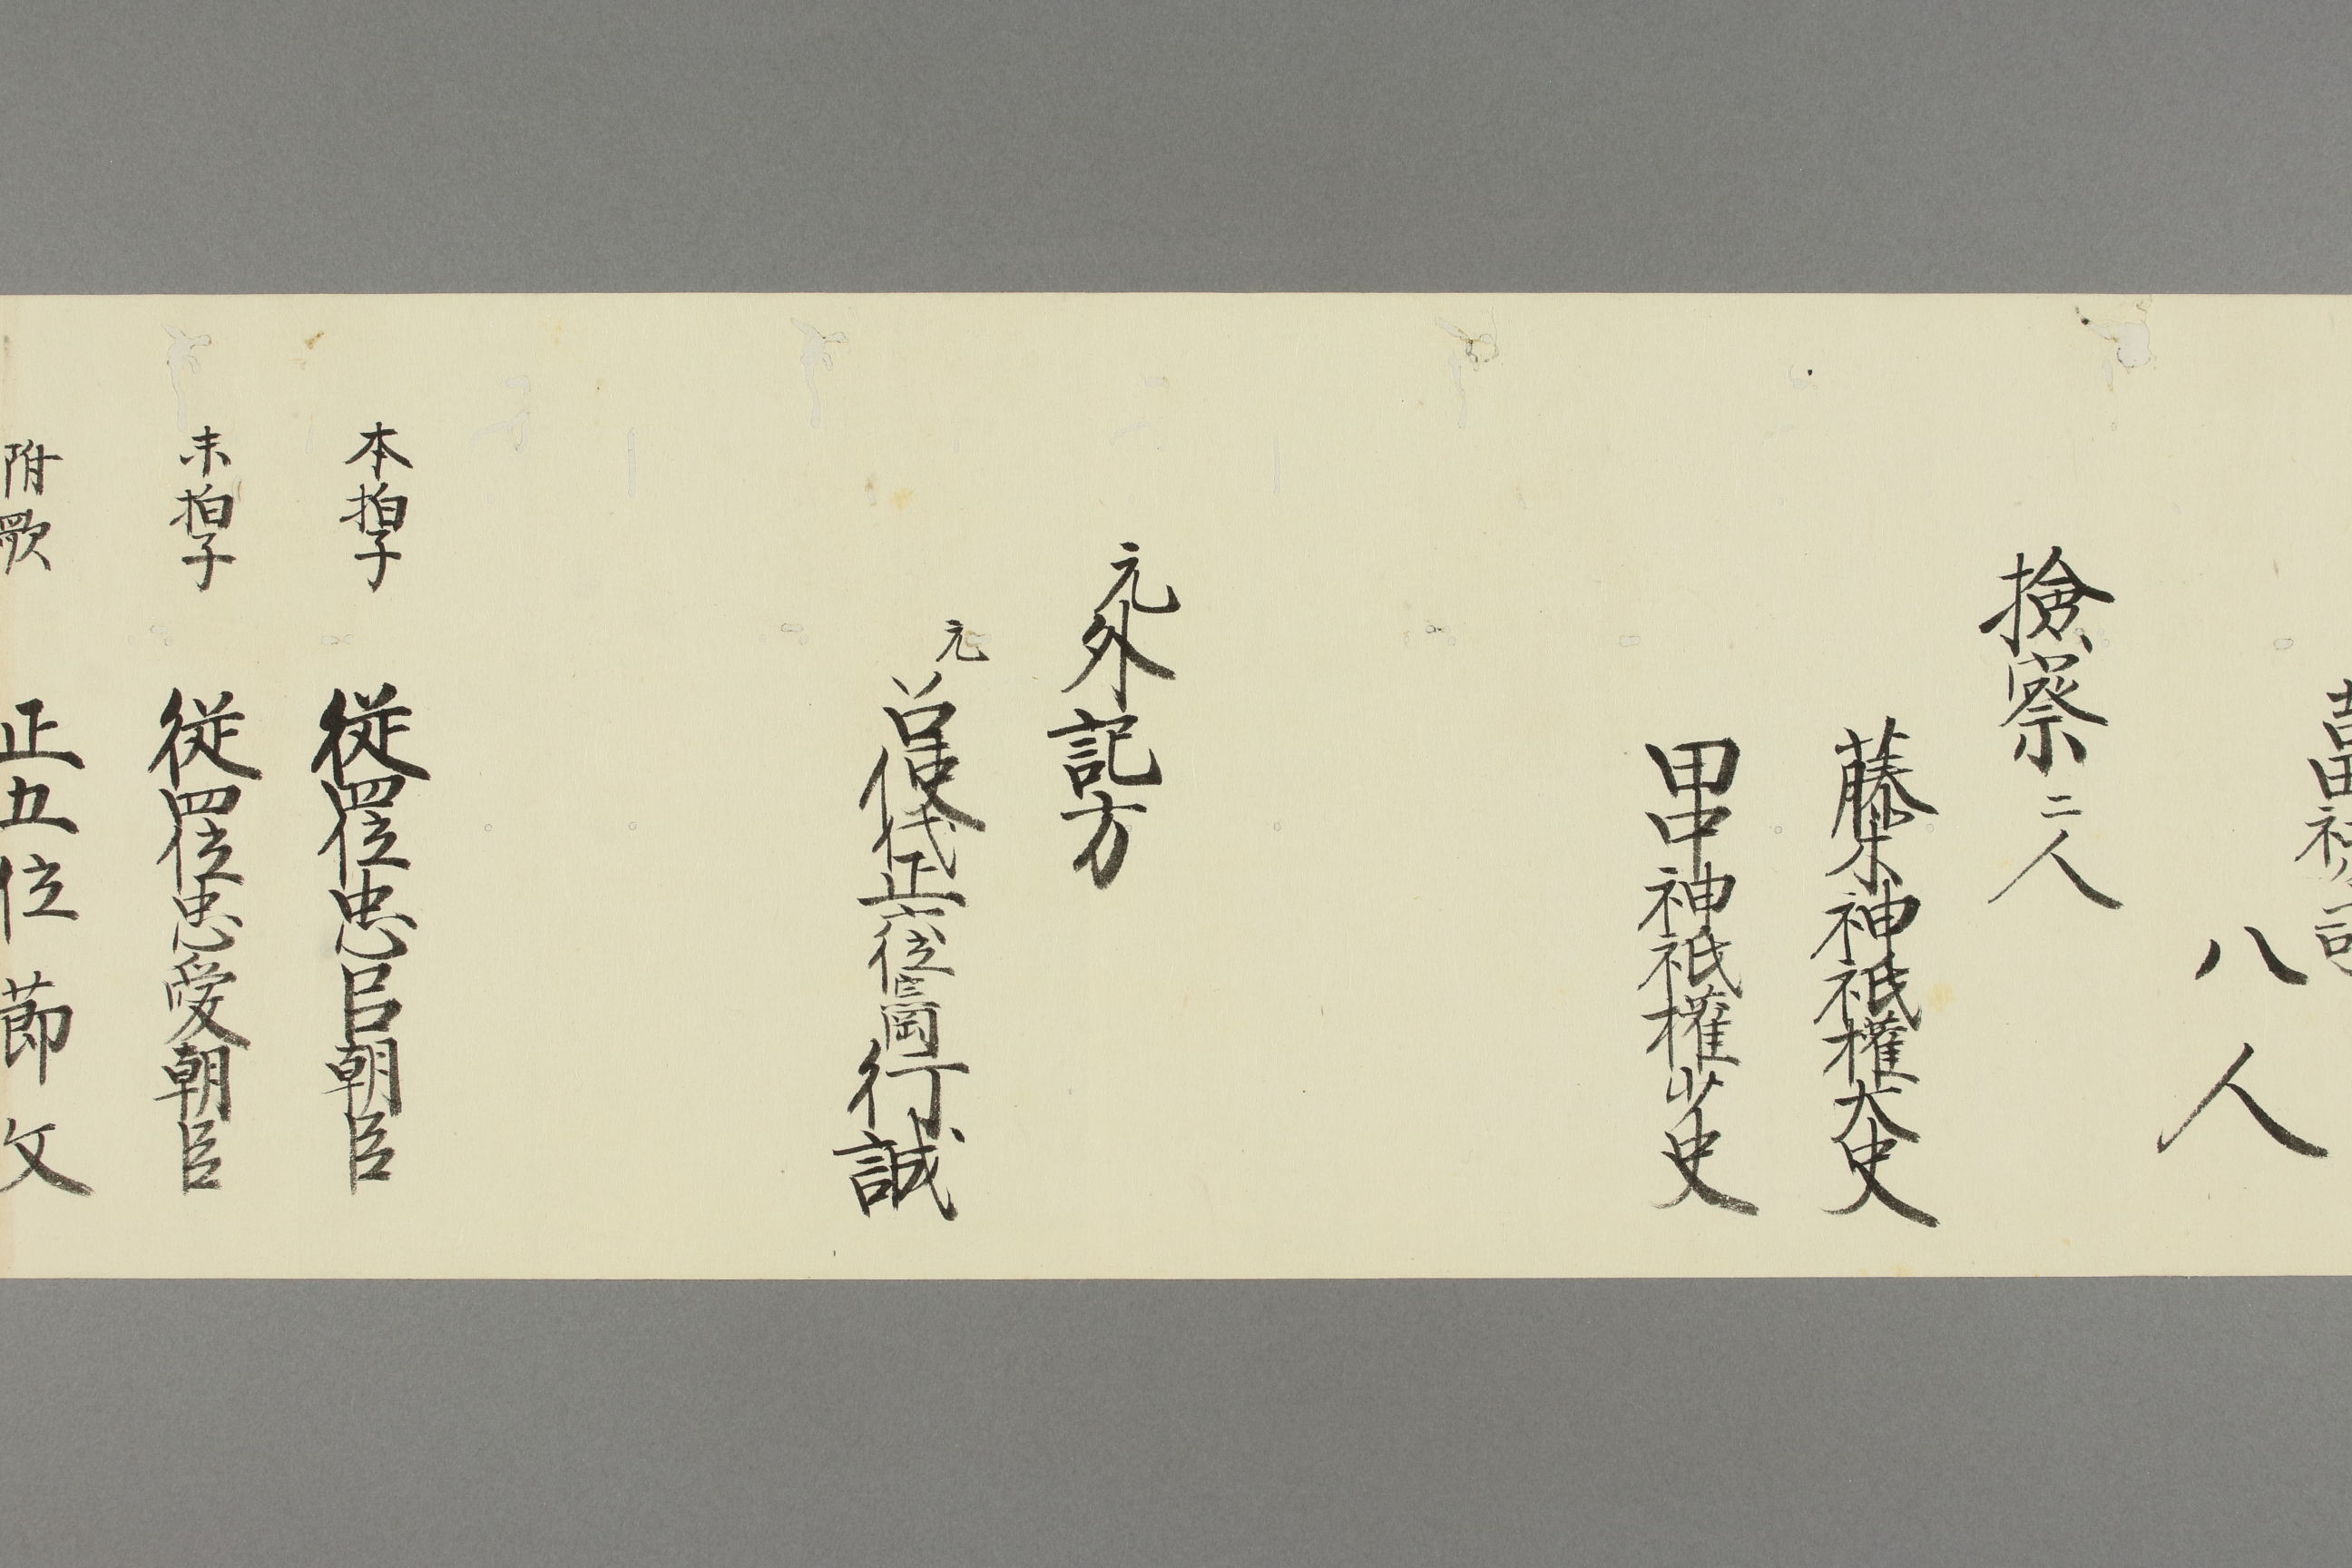 八人
撿察二人
藤木神祇権大史
田中神祇権少史
元外記方
元召使代正六位宗岡行誠
本拍子 従四位忠臣朝臣
末拍子 従四位忠愛朝臣
附歌 正五位節文